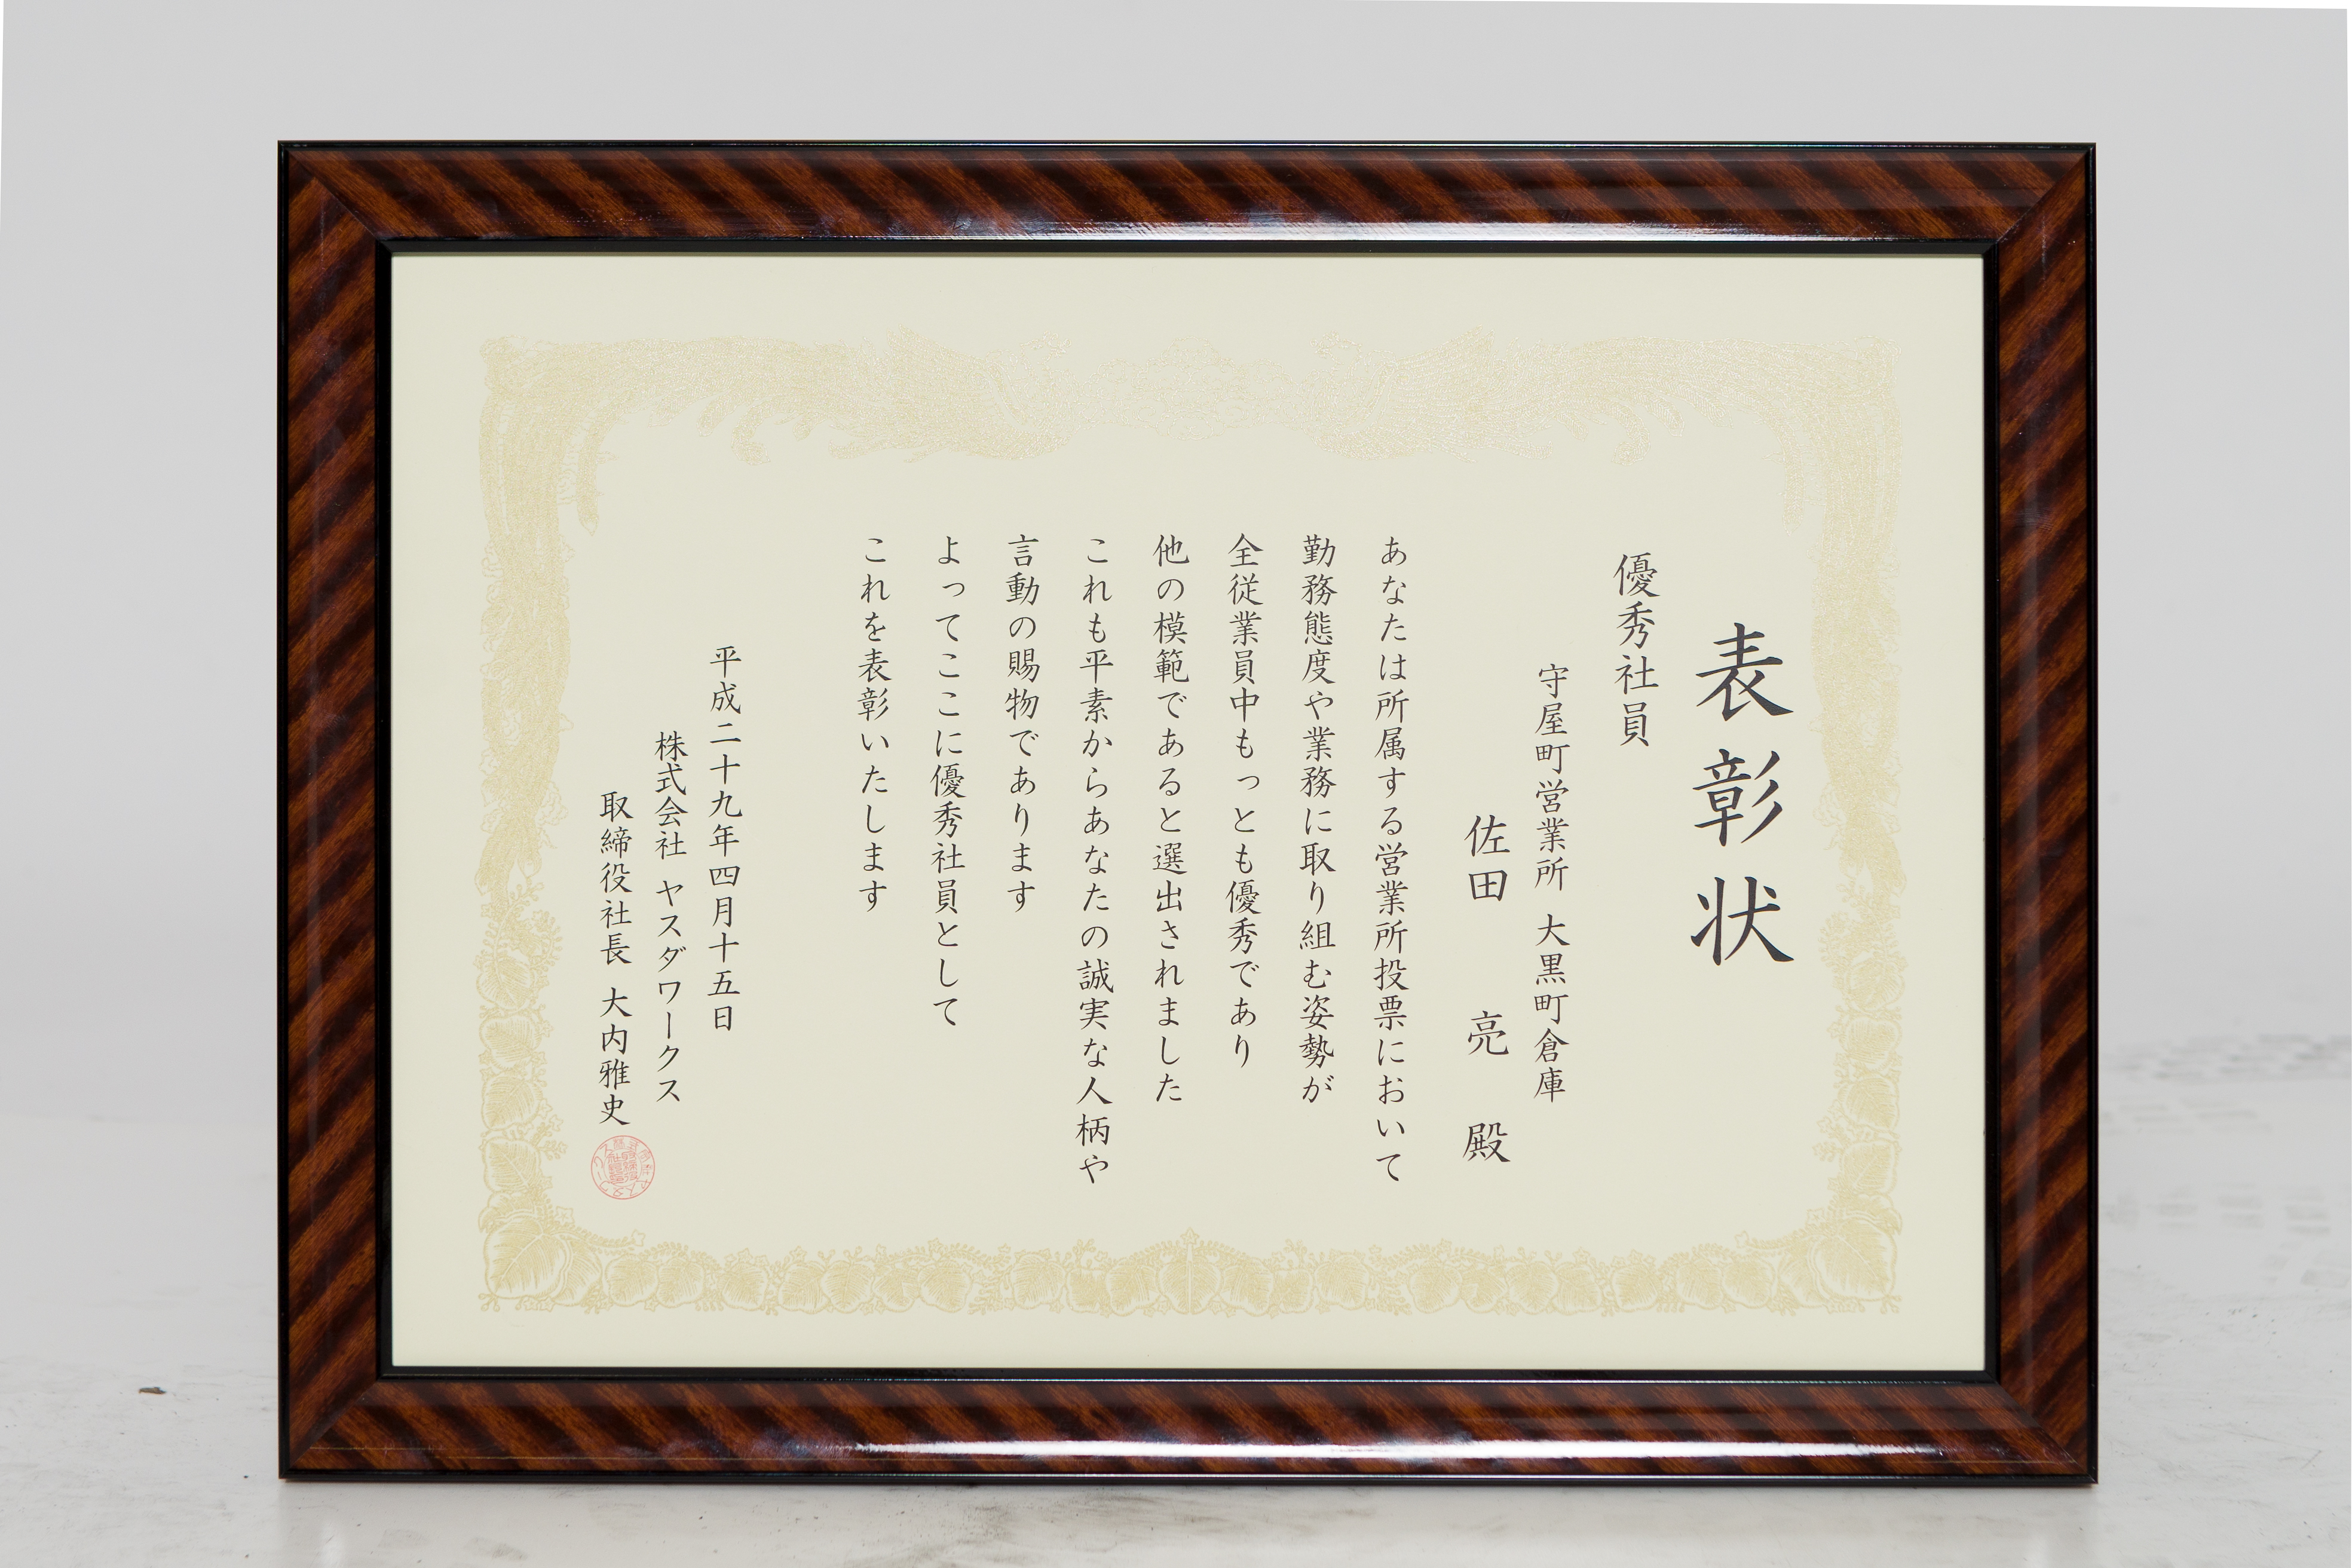 表彰状
優秀社員
守屋町営業所 大黒町倉庫
佐田 亮 殿
あなたは所属する営業所投票において
勤務態度や業務に取り組む姿勢が
全従業員中もっとも優秀であり
他の模範であると選出されました
これも平素からあなたの誠実な人柄や
言動の賜物であります
よってここに優秀社員として
これを表彰いたします
平成二十九年四月十五日
株式会社 ヤスダワークス
取締役社長 大内雅史